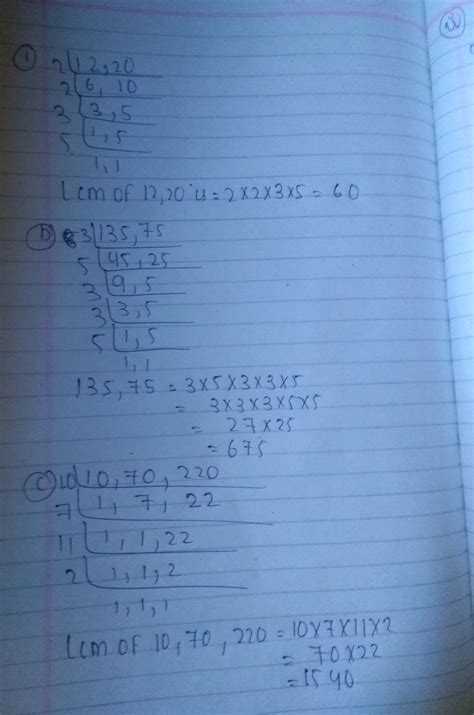 ① 2 | 12, 20
2 | 6, 10
3 | 3, 5
5 | 1, 5
1, 1
Lcm of 12,20 is = 2×2×3×5 = 60
ⓑ 3 | 135, 75
5 | 45, 25
3 | 9, 5
3 | 3, 5
5 | 1, 5
1, 1
135, 75 = 3×5×3×3×5
= 3×3×3×5×5
= 27×25
= 675
ⓒ 10 | 10, 70, 220
7 | 1, 7, 22
11 | 1, 1, 22
2 | 1, 1, 2
1, 1, 1
Lcm of 10, 70, 220 = 10×7×11×2
= 70×22
= 1540